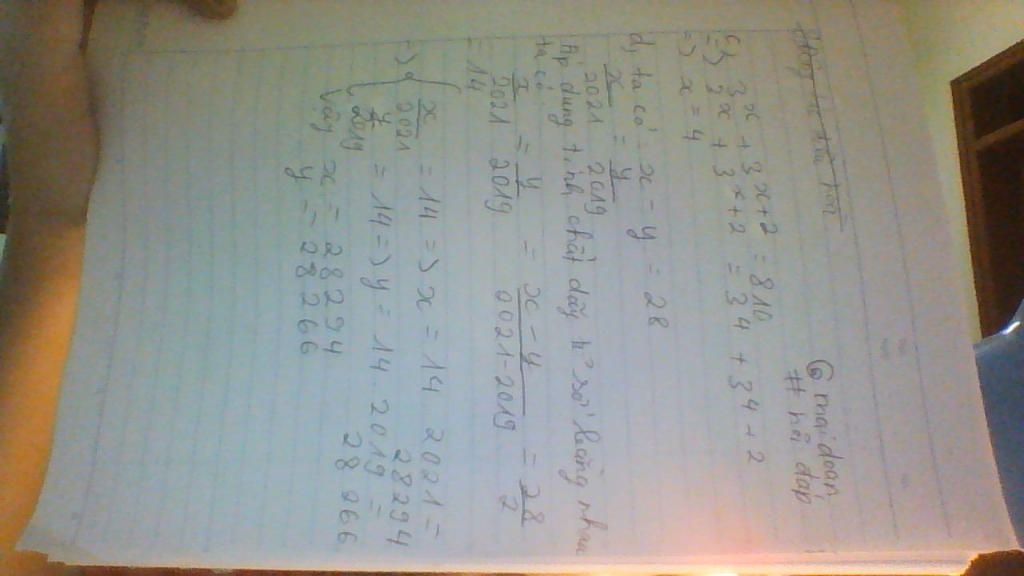 @maidoan
# hỏi đáp
c) 3^x + 3^x+2 = 810
=> 3^x + 3^x+2 = 3^4 + 3^4+2
=> x = 4
d, ta có x - y = 28
x/2021 = y/2019
Áp dụng tính chất dãy tỉ số bằng nhau
ta có
x/2021 = y/2019 = x-y/2021-2019 = 28/2
= 14
=> { x/2021 = 14 => x = 14 . 2021 =
28294
y/2019 = 14 => y = 14 . 2019 =
28 066
Vậy x = 28294
y = 28266